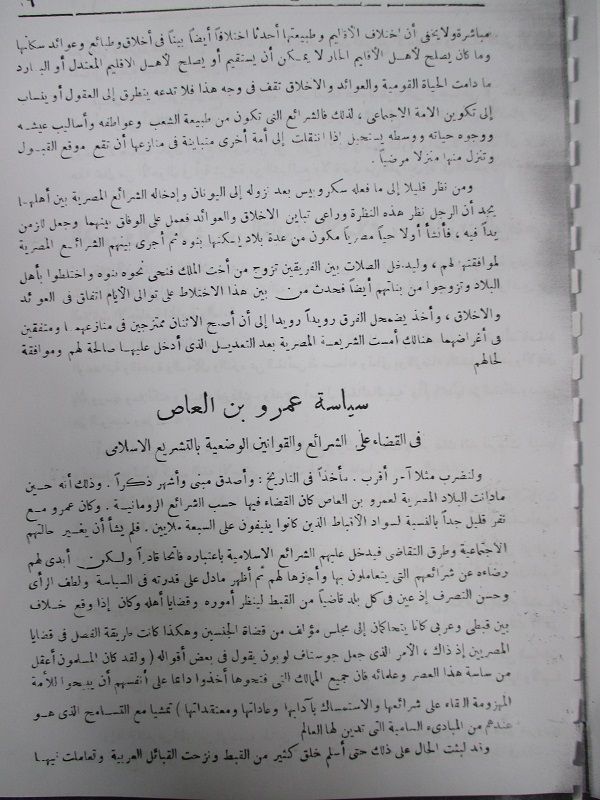 مباشرة ولا يخفى أن اختلاف الأقاليم وطبيعتها أحدثا اختلافاً أيضاً بيناً فى أخلاق وطبائع وعوائد سكانها
وما كان يصلح لأهل الأقليم الحار لا يمكن أن يستقيم أو يصلح لأهل الاقليم المعتدل أو البارد
ما دامت الحياة القومية والعوائد والاخلاق تقف فى وجه هذا فلا تدعه يتطرق إلى العقول أو ينساب
إلى تكوين الامة الاجتماعى ، لذلك فالشرائع التى تكون من طبيعة الشعب وعواطفه وأساليب عيشه
ووجوه حياته ووسطه يستحيل إذا انتقلت إلى أمة أخرى متباينة فى منازعها أن تقع موقع القبول
وتنزل منها منزلا مرضياً .
ومن نظر قليلا إلى ما فعله سكروبيس بعد نزوله إلى اليونان وإدخاله الشرائع المصرية بين أهلها
يجد أن الرجل نظر هذه النظرة وراعى تباين الاخلاق والعوائد فعمل على الوفاق بينهما وجعل للزمن
يداً فيه ، فأنشأ أولا حياً مصرياً مكون من عدة بلاد يسكنها بنوه ثم أجرى بينهم الشرائع المصرية
لموافقتها لهم ، وليدخل الصلات بين الفريقين تزوج من أخت الملك فنحى نحوه بنوه واختلطوا بأهل
البلاد وتزوجوا من بناتهم أيضاً فحدث من بين هذا الاختلاط على توالى الأيام اتفاق فى العوائد
والاخلاق ، وأخذ يضمحل الفرق رويداً رويدا إلى أن أصبح الاثنان ممتزجين فى منازعهما ومتفقين
فى أغراضهما هنالك أمست الشريعة المصرية بعد التعديل الذى أدخل عليها صالحة لهم وموافقة
لحالهم
سياسة عمرو بن العاص
فى القضاء على الشرائع والقوانين الوضعية بالتشريع الاسلامى
ولنضرب مثلا آخر أقرب . مأخذاً فى التاريخ : وأصدق مبنى وأشهر ذكراً . وذلك أنه حين
مادانت البلاد المصرية لعمرو بن العاص كان القضاء فيها حسب الشرائع الرومانية . وكان عمرو مع
نفر قليل جداً بالنسبة لسواد الاقباط الذين كانوا ينيفون على السبعة ملايين . فلم يشأ أن يغير حالتهم
الاجتماعية وطرق التقاضى فيدخل عليهم الشرائع الاسلامية باعتباره فاتحا قادراً ولكن أبدى لهم
رضاءه عن شرائعهم التى يتعاملون بها وأجازها لهم ثم أظهر مادل على قدرته فى السياسة ولطف الرأى
وحسن التصرف إذ عين فى كل بلد قاضياً من القبط لينظر أموره وقضايا أهله وكان إذا وقع خلاف
بين قبطى وعربى كانا يتحاكمان إلى مجلس مؤلف من قضاة الجنسين وهكذا كانت طريقة الفصل فى قضايا
المصريين إذ ذاك ، الأمر الذى جعل جوستاف لوبون يقول فى بعض أقواله ( ولقد كان المسلمون أعقل
من ساسة هذا العصر وعلمائه فان جميع الممالك التى فتحوها أخذوا دائما على أنفسهم أن يبيحوا للأمة
المهزومة البقاء على شرائعها والاستمساك بآدابها وعاداتها ومعتقداتها ) تمشيا مع التسامح الذى هو
عندهم من المبادىء السامية التى تدين لها العالم
وقد لبثت الحال على ذلك حتى أسلم خلق كثير من القبط ونزحت القبائل العربية وتعاملت فيها